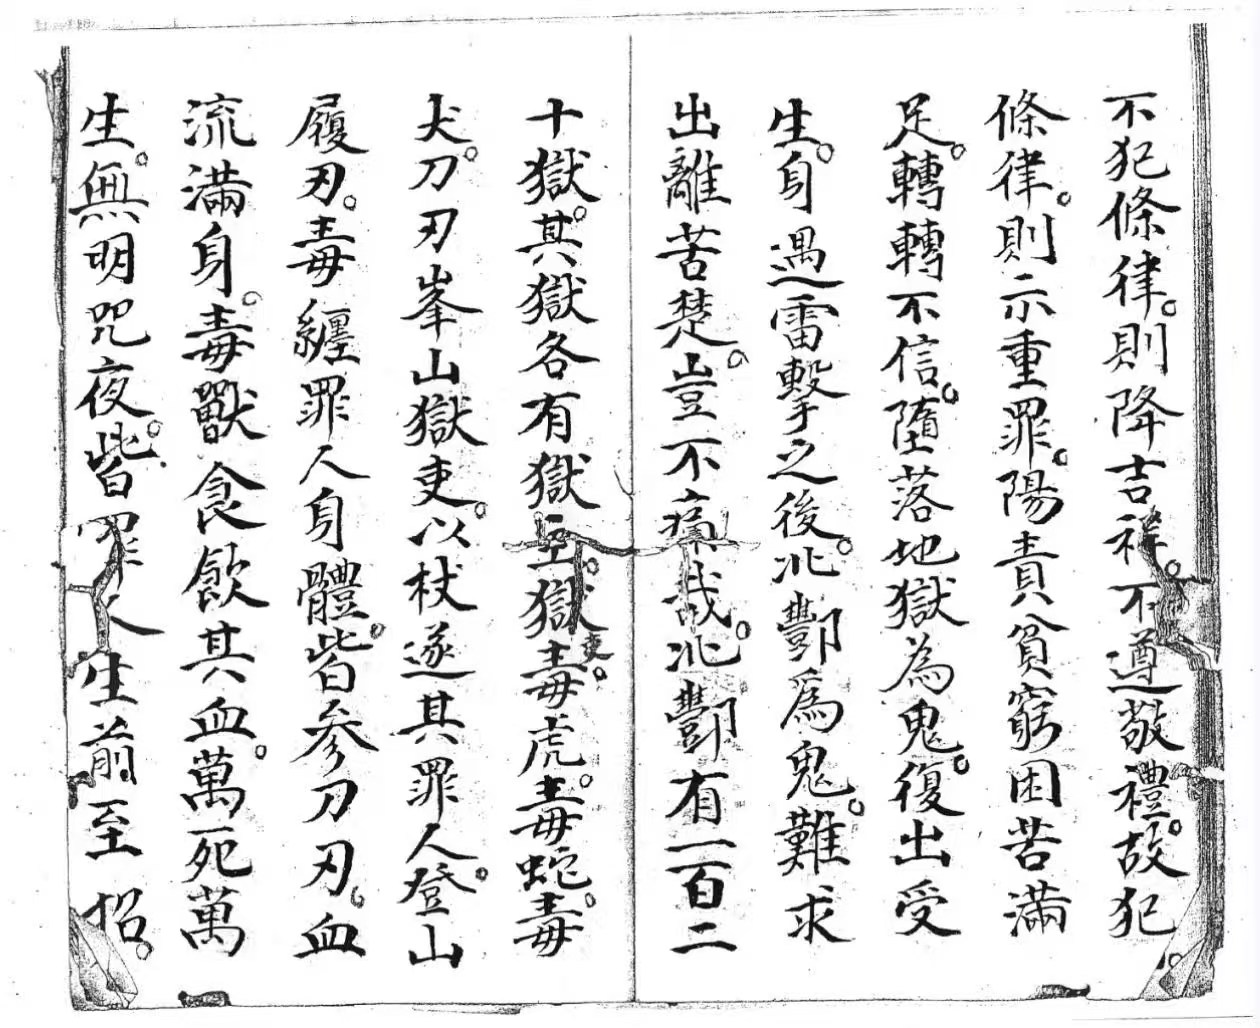 不犯條律。則降吉祥。不遵敬禮。故犯。
條律。則示重罪。陽責貧窮困苦滿
足。轉轉不信。墮落地獄為鬼。復出受
生。身遇雷擊之後。北酆爲鬼。難求
出離苦楚。豈不痛哉。北酆有一百二
十獄。其獄各有獄主。獄吏。毒虎。毒蛇。毒
犬。刀刃峯山獄吏。以杖逐其罪人。登山
履刃。毒纏罪人身體。皆參刀刃。血
流滿身。毒獸食飲其血。萬死萬
生。無明咒夜。皆罪人生前至招。